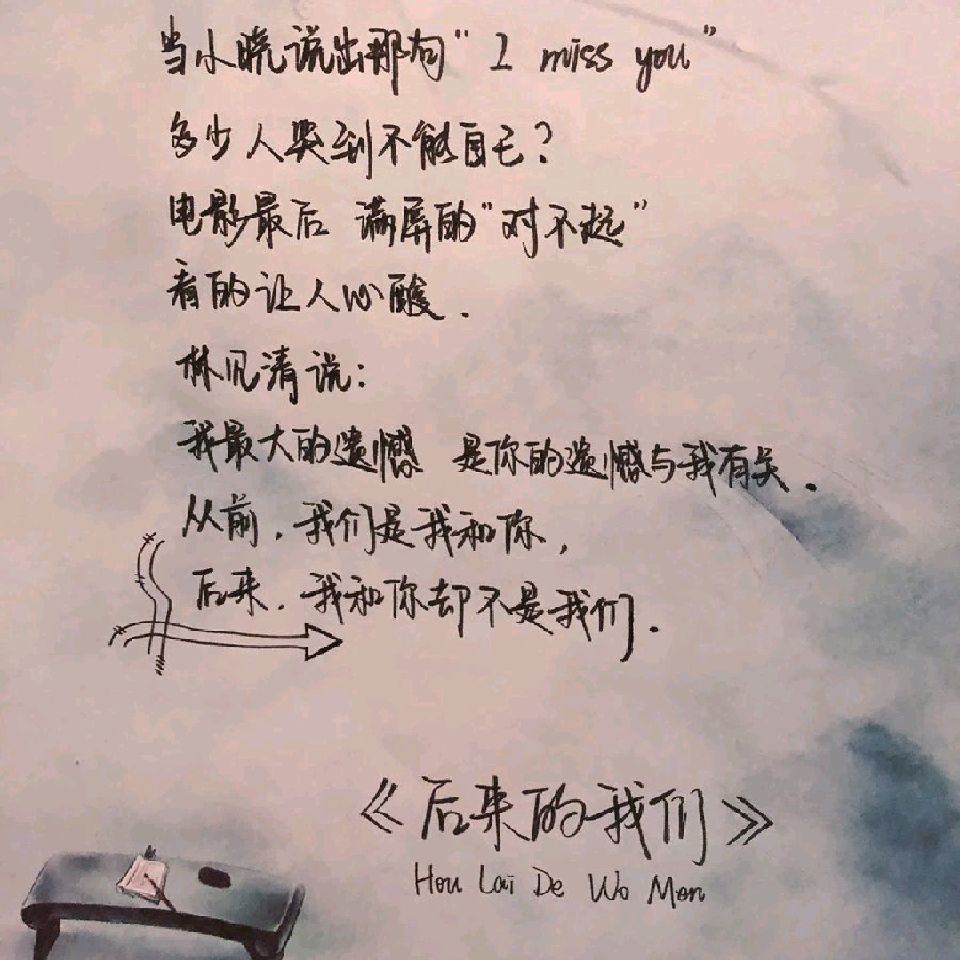 当小晓说出那句“I miss you”
多少人哭到不能自已？
电影最后 满屏的“对不起”
看的让人心酸．
林见清说：
我最大的遗憾 是你的遗憾与我有关．
从前，我们是我和你，
后来．我和你却不是我们．
《后来的我们》
Hou Lai De Wo Men